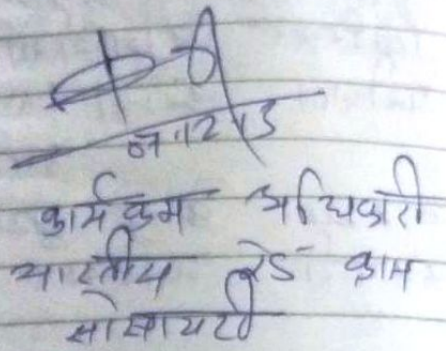 07.12.13
कार्यक्रम अधिकारी
भारतीय रेड क्रास
सोसायटी